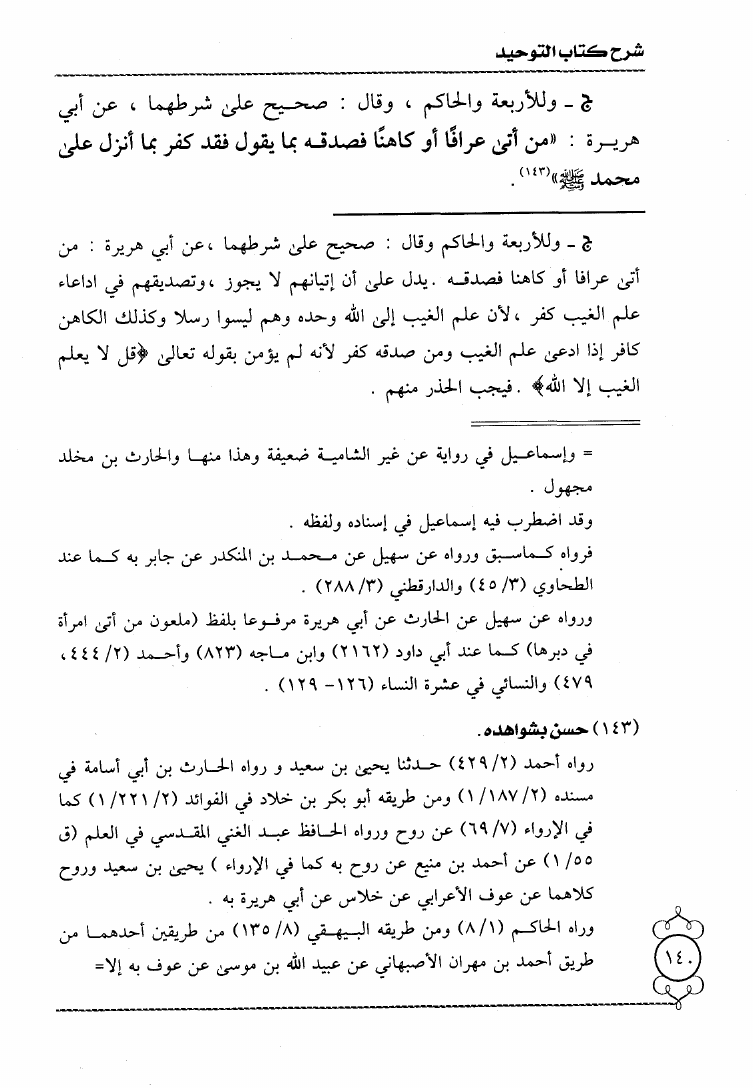 شرح كتاب التوحيد
ج ـ وللأربعة والحاكم ، وقال : صحيح على شرطهما ، عن أبي
هريرة : «من أتى عرافًا أو كاهنًا فصدقه بما يقول فقد كفر بما أنزل على
محمد ﷺ»(١٤٣) .
ج ـ وللأربعة والحاكم وقال : صحيح على شرطهما ،عن أبي هريرة : من
أتى عرافا أو كاهنا فصدقه .يدل على أن إتيانهم لا يجوز ،وتصديقهم في ادعاء
علم الغيب كفر ،لأن علم الغيب إلى الله وحده وهم ليسوا رسلا وكذلك الكاهن
كافر إذا ادعى علم الغيب ومن صدقه كفر لأنه لم يؤمن بقوله تعالى ﴿قل لا يعلم
الغيب إلا الله﴾ .فيجب الحذر منهم .
= وإسماعيل في رواية عن غير الشامية ضعيفة وهذا منها والحارث بن مخلد
مجهول .
وقد اضطرب فيه إسماعيل في إسناده ولفظه .
فرواه كماسبق ورواه عن سهيل عن محمد بن المنكدر عن جابر به كما عند
الطحاوي (٣/ ٤٥) والدارقطني (٣/ ٢٨٨) .
ورواه عن سهيل عن الحارث عن أبي هريرة مرفوعا بلفظ (ملعون من أتى امرأة
في دبرها) كما عند أبي داود (٢١٦٢) وابن ماجه (٨٢٣) وأحمد (٢/ ٤٤٤،
٤٧٩) والنسائي في عشرة النساء (١٢٦- ١٢٩) .
(١٤٣) حسن بشواهده.
رواه أحمد (٢/ ٤٢٩) حدثنا يحيى بن سعيد و رواه الحارث بن أبي أسامة في
مسنده (٢/ ١٨٧/ ١) ومن طريقه أبو بكر بن خلاد في الفوائد (٢/ ٢٢١/ ١) كما
في الإرواء (٧/ ٦٩) عن روح ورواه الحافظ عبد الغني المقدسي في العلم (ق
٥٥/ ١) عن أحمد بن منيع عن روح به كما في الإرواء ) يحيى بن سعيد وروح
كلاهما عن عوف الأعرابي عن خلاس عن أبي هريرة به .
وراه الحاكم (١/ ٨) ومن طريقه البيهقي (٨/ ١٣٥) من طريقين أحدهما من
طريق أحمد بن مهران الأصبهاني عن عبيد الله بن موسى عن عوف به إلا=
١٤٠